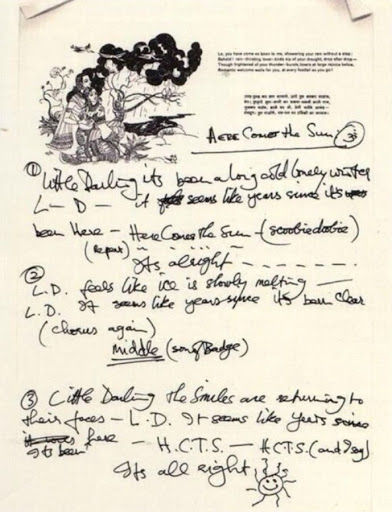 Lo, you have come so soon to me, showering your rain without a stop:
Behold! rain-thirsting lover-birds sip of your draught, drop after drop—
Though frightened of your thunder-bursts, lovers at large rejoice before,
Romantic welcome waits for you, at every footfall as you go!
HERE COMES the Sun 3
① Little Darling its been a long cold lonely winter
L — D — it seems like years since its
been Here — Here Comes the Sun — (scoobiedoobie)
(repeat) — — — —
Its alright — — — — — —
② L.D. feels like ice is slowly melting —
L.D. It seems like years since its been clear
(chorus again)
middle (song Badge)
③ Little Darling the Smiles are returning to
their faces — L.D. It seems like years since
its been here — H.C.T.S. — H.C.T.S. (and I say)
Its all right